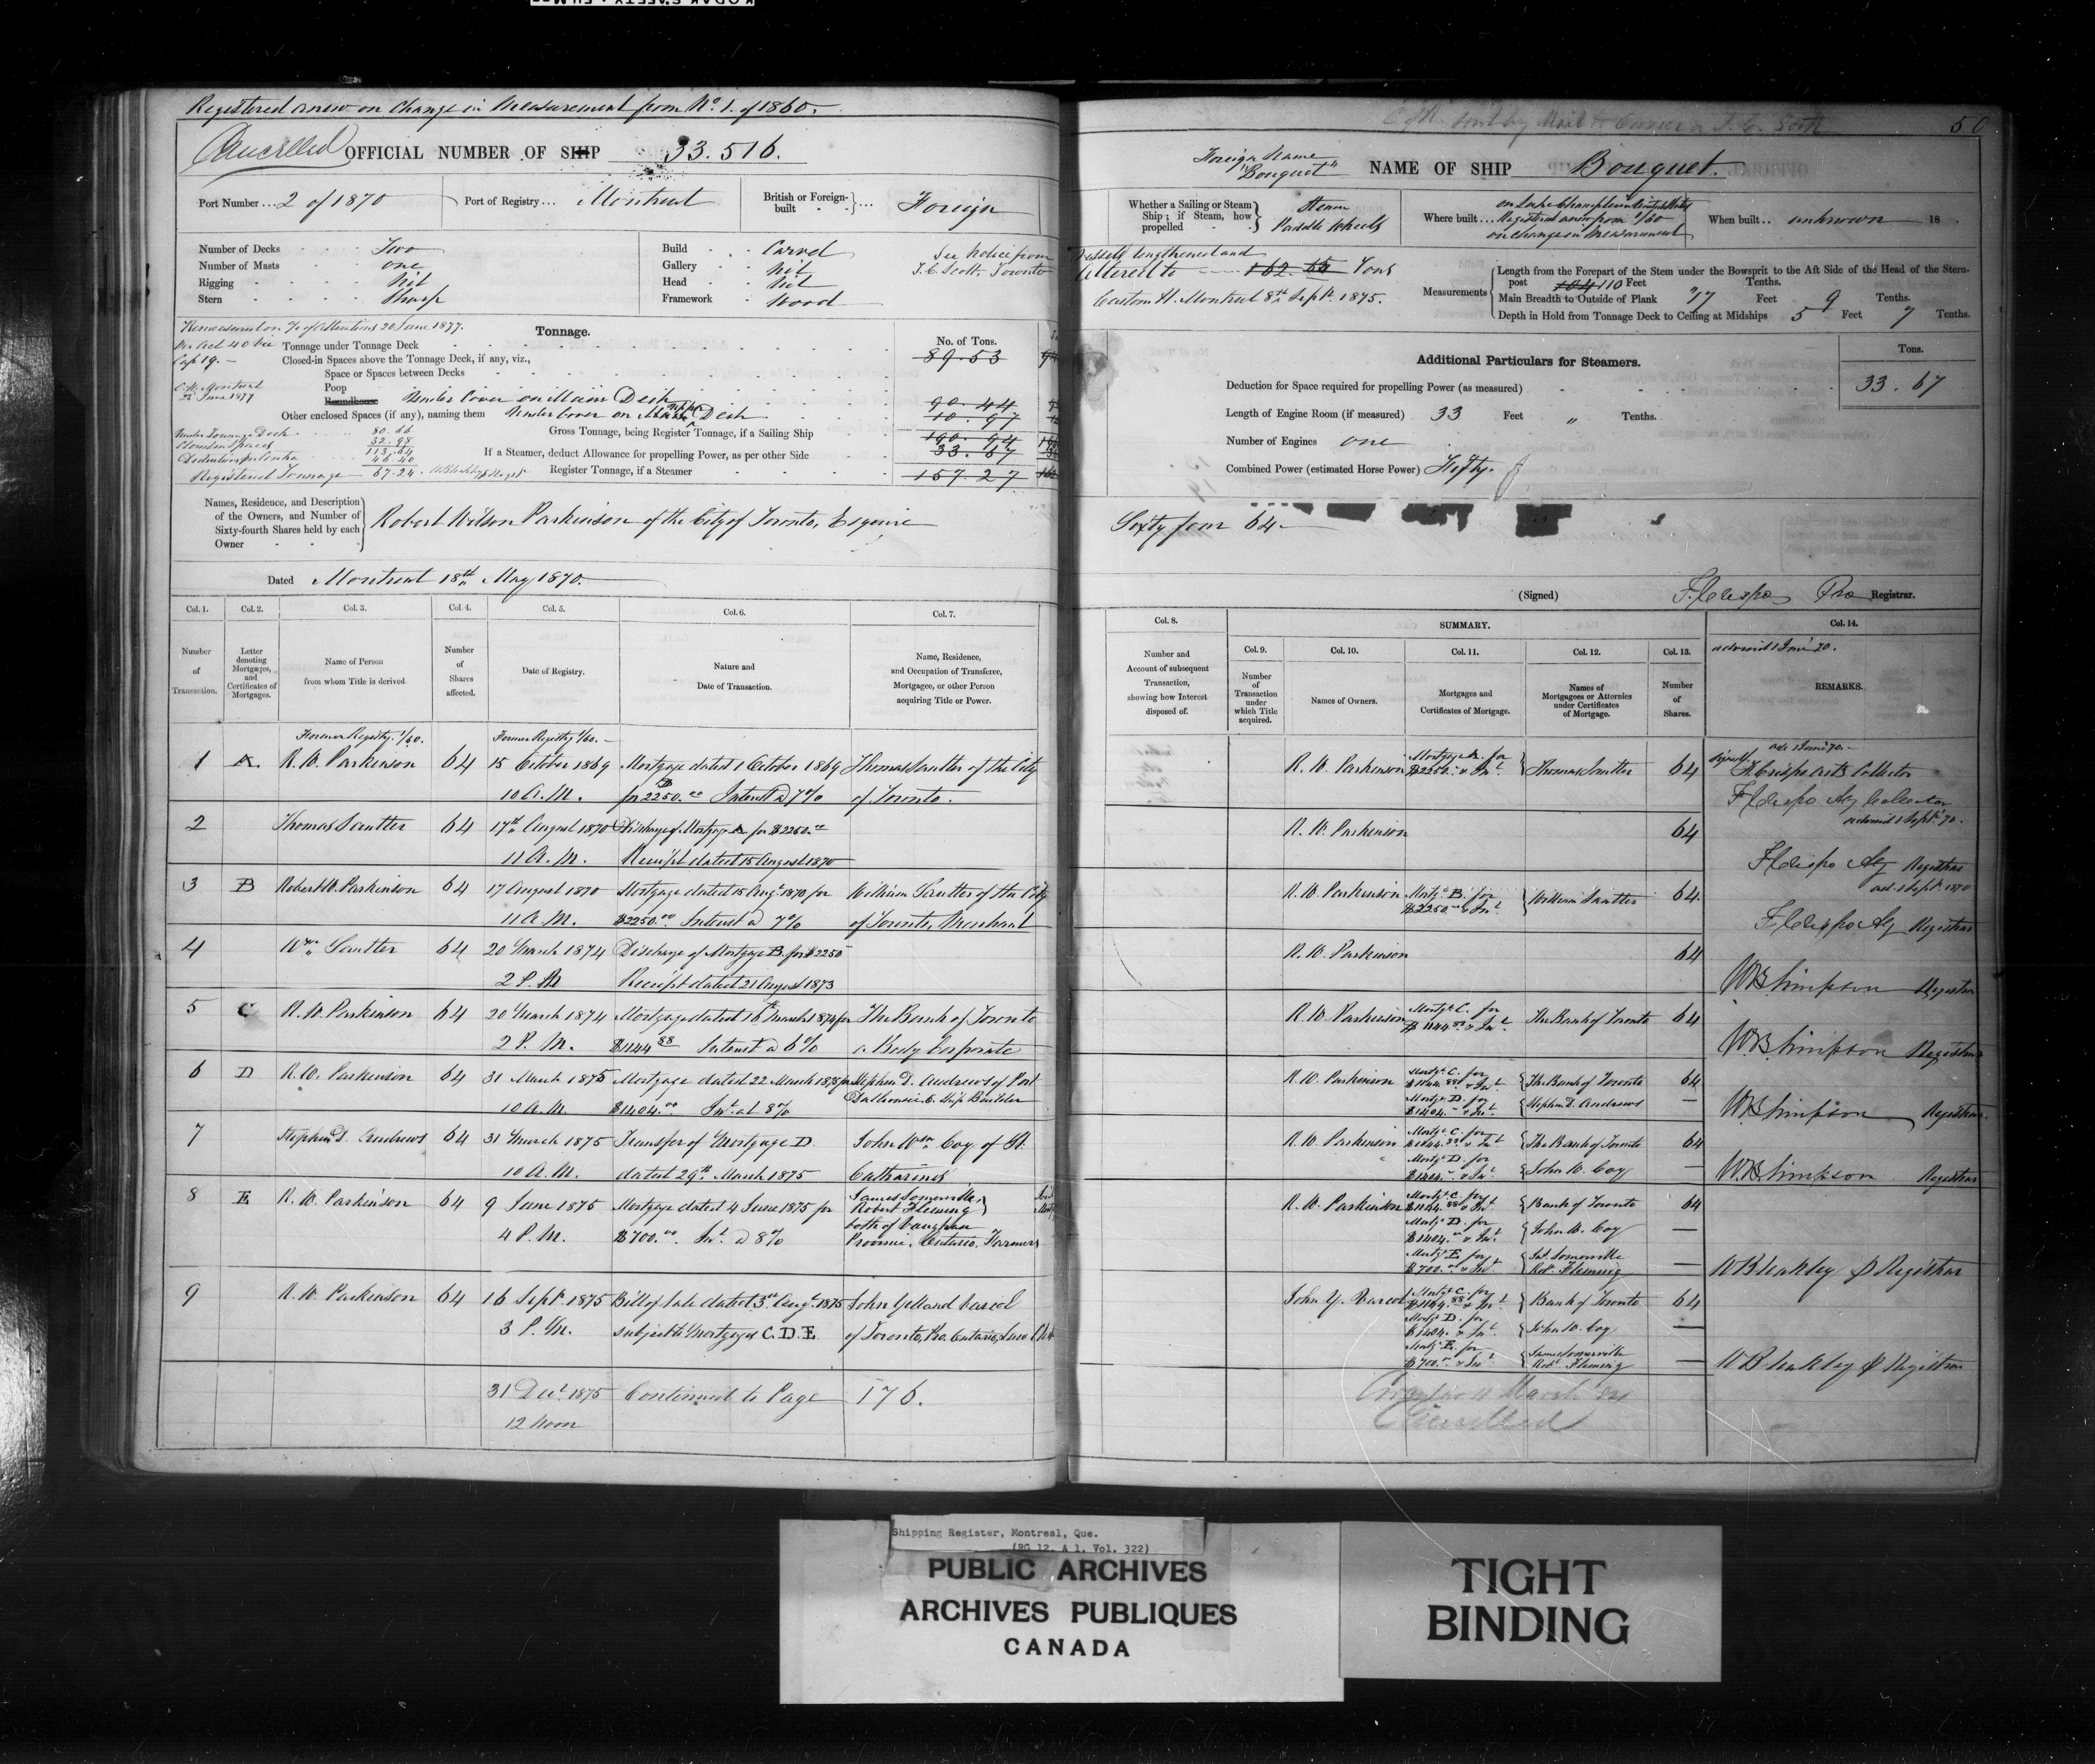 Registered anew on Change in Measurement from No. 1. of 1860.
Cancelled OFFICIAL NUMBER OF SHIP 33.516.
Port Number ... 2 of 1870 Port of Registry ... Montreal British or Foreign-built ... Foreign
Number of Decks Two
Number of Masts one
Rigging Nil
Stern Sharp
Build Carvel
Gallery Nil
Head Nil
Framework Wood
See Notice from
T. C. Scott, Toronto
Remeasured on % of alterations 20 June 1877.
Cap 19.
C. H. Montreal
22 June 1877
Tonnage.
No. of Tons.
Tonnage under Tonnage Deck 89.53
Closed-in Spaces above the Tonnage Deck, if any, viz.,
Space or Spaces between Decks
Poop
Roundhouse Under Cover on Main Deck 90.44
Other enclosed Spaces (if any), naming them Under Cover on Deck 10.97
Under Tonnage Deck 80.66
32.98
113.64
46.40
Registered Tonnage 67.24
Gross Tonnage, being Register Tonnage, if a Sailing Ship 190.94
If a Steamer, deduct Allowance for propelling Power, as per other Side 33.67
Register Tonnage, if a Steamer 157.27
Names, Residence, and Description
of the Owners, and Number of
Sixty-fourth Shares held by each
Owner
Robert Wilson Parkinson of the City of Toronto, Esquire
Dated Montreal 18th May 1870.
Col. 1. Col. 2. Col. 3. Col. 4. Col. 5. Col. 6. Col. 7.
Number of Transaction.
Letter denoting Mortgages, and Certificates of Mortgages.
Name of Person from whom Title is derived
Number of Shares affected.
Date of Registry.
Nature and Date of Transaction.
Name, Residence, and Occupation of Transferee, Mortgagee, or other Person acquiring Title or Power.
Former Registry 1/60. Former Registry 1/60.
1 A. R. W. Parkinson 64 15 October 1869 Mortgage dated 1 October 1869 Thomas Sautter of the City
10 A.M. for $2250.00 Interest @ 7% of Toronto.
2 Thomas Sautter 64 17th August 1870 Discharge of Mortgage A for $2250.00
11 A.M. Receipt dated 15 August 1870
3 B Robert W. Parkinson 64 17 August 1870 Mortgage dated 15 Augt 1870 for William Sautter of the City
11 A.M. $2250.00 Interest @ 7% of Toronto, Merchant
4 Wm Sautter 64 20 March 1874 Discharge of Mortgage B. for $2250
2 P.M Receipt dated 21 August 1873
5 C R. W. Parkinson 64 20 March 1874 Mortgage dated 16th March 1874 for The Bank of Toronto
2 P.M. $1144.88 Interest @ 6% a Body Corporate
6 D R. W. Parkinson 64 31 March 1875 Mortgage dated 22 March 1875 for Stephen D. Andrews of Port
10 A.M. $1404.00 Int. at 8% Dalhousie, Ship Builder
7 Stephen D. Andrews 64 31 March 1875 Transfer of Mortgage D. John Wm Coy of St.
10 A.M. dated 29th March 1875 Catharines
8 E R. W. Parkinson 64 9 June 1875 Mortgage dated 4 June 1875 for James Somerville, Robert Fleming
4 P.M. $700.00 Int. @ 8% both of Vaughan Province, Ontario, Farmers
9 R. W. Parkinson 64 16 Sept. 1875 Bill of Sale dated 3rd Augt. 1875 John Yelland
3 P.M. subject to Mortgages C.D.E. of Toronto, Ontario,
31 Decr. 1875 Continued to Page 176.
12 Noon
50
Foreign Name "Bouquet" NAME OF SHIP Bouquet.
Whether a Sailing or Steam Ship; if Steam, how propelled Steam Paddle Wheels
Where built ... on Lake Champlain United States
Registered anew from 1/60
on change in Measurement
When built .. unknown 18
Vessel lengthened and
Altered to 162.65 Tons
Custom H. Montreal 8th Sept. 1875.
Measurements
Length from the Forepart of the Stem under the Bowsprit to the Aft Side of the Head of the Stern-
post 104 110 Feet Tenths.
Main Breadth to Outside of Plank 17 Feet 9 Tenths.
Depth in Hold from Tonnage Deck to Ceiling at Midships 5 Feet 7 Tenths.
Additional Particulars for Steamers. Tons.
Deduction for Space required for propelling Power (as measured) 33.67
Length of Engine Room (if measured) 33 Feet " Tenths.
Number of Engines one
Combined Power (estimated Horse Power) Fifty.
Sixty four 64
(Signed) F. Crispo Pro Registrar.
Col. 8. SUMMARY. Col. 14.
Col. 9. Col. 10. Col. 11. Col. 12. Col. 13.
Number and Account of subsequent Transaction, showing how Interest disposed of.
Number of Transaction under which Title acquired.
Names of Owners.
Mortgages and Certificates of Mortgage.
Names of Mortgagees or Attornies under Certificates of Mortgage.
Number of Shares.
REMARKS.
R. W. Parkinson Mortgage A. for $2250. & Int. Thomas Sautter 64
F Crispo Actg Collector
R. W. Parkinson 64
F Crispo Actg Registrar
R. W. Parkinson Mortg. B. for $2250. & Int. William Sautter 64.
F Crispo Actg Registrar
R. W. Parkinson 64
WB Simpson Registrar
R. W. Parkinson Mortg. C. for $1144.88 & Int. The Bank of Toronto 64
WB Simpson Registrar
R. W. Parkinson Mortg. C. for $1144.88 & Int. The Bank of Toronto 64
Mortg. D. for $1404. & Int. Stephen D. Andrews —
WB Simpson Registrar.
R. W. Parkinson Mortg. C. for $1144.88 & Int. The Bank of Toronto 64
Mortg. D. for $1404. & Int. John W. Coy —
WB Simpson Registrar
R. W. Parkinson Mortg. C. for $1144.88 & Int. Bank of Toronto 64
Mortg. D. for $1404. & Int. John W. Coy —
Mortg. E. for $700.00 & Int. Jas. Somerville Robt. Fleming —
Registrar
John Y. Mortg. C. for $1144.88 & Int. Bank of Toronto 64
Mortg. D. for $1404. & Int. John W. Coy —
Mortg. E. for $700.00 & Int. James Somerville Robt Fleming —
Registrar
Cancelled
Shipping Register, Montreal, Que.
(RG 12, A 1, Vol. 322)
PUBLIC ARCHIVES
ARCHIVES PUBLIQUES
CANADA
TIGHT
BINDING